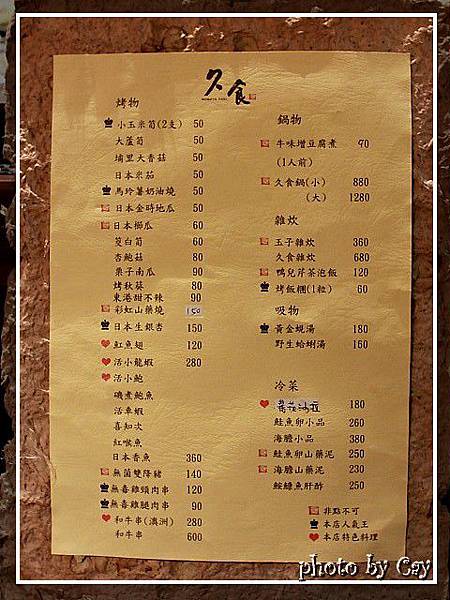 久食
烤物
小玉米筍(2支) 50
大蘆筍 50
埔里大香菇 50
日本米茄 50
馬玲薯奶油燒 50
日本金時地瓜 50
日本櫛瓜 60
筊白筍 60
杏鮑菇 80
栗子南瓜 90
烤秋葵 80
東港甜不辣 90
彩虹山藥燒 150
日本生銀杏 150
紅魚翅 120
活小龍蝦 280
活小鮑
磯煮鮑魚
活車蝦
喜知次
紅喉魚
日本香魚 360
無菌雙降豬 140
無毒雞頸肉串 120
無毒雞腿肉串 90
和牛串(澳洲) 280
和牛串 600
鍋物
牛味增豆腐煮 70
(1人前)
久食鍋(小) 880
(大) 1280
雜炊
玉子雜炊 360
久食雜炊 680
鴨兒芹茶泡飯 120
烤飯糰(1粒) 60
吸物
黃金蜆湯 180
野生蛤蜊湯 160
冷菜
180
鮭魚卵小品 260
海膽小品 380
鮭魚卵山藥泥 250
海膽山藥泥 230
鮟鱇魚肝酢 250
非點不可
本店人氣王
本店特色料理
photo by Cay